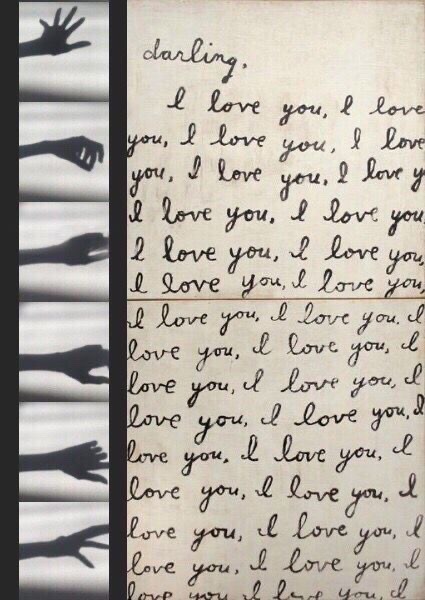 darling,
I love you, I love
you, I love you, I love
you, I love you, I love y
I love you, I love you
I love you, I love you,
I love you, I love you,
I love you, I love you, I
love you, I love you, I
love you, I love you, I
love you, I love you, I
love you, I love you, I
love you, I love you, I
love you, I love you, I
love you, I love you, I
love you, I love you, I